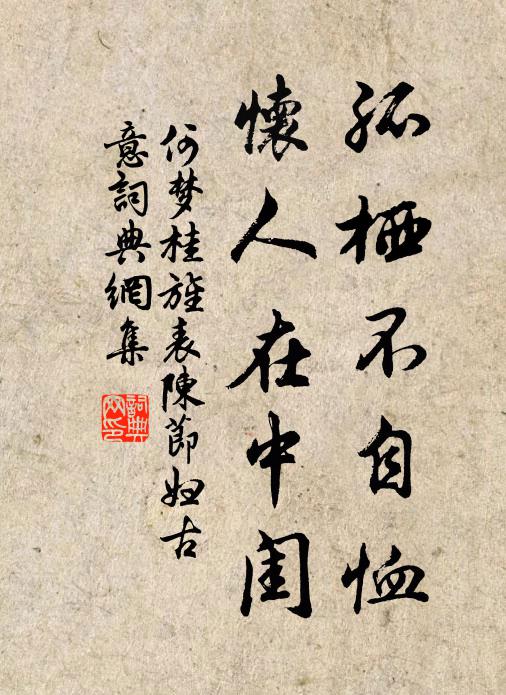 孤栖不自恤
懷人在中閨
何梦桂旌表陳節妇古
意詞典網集
詞典
网印